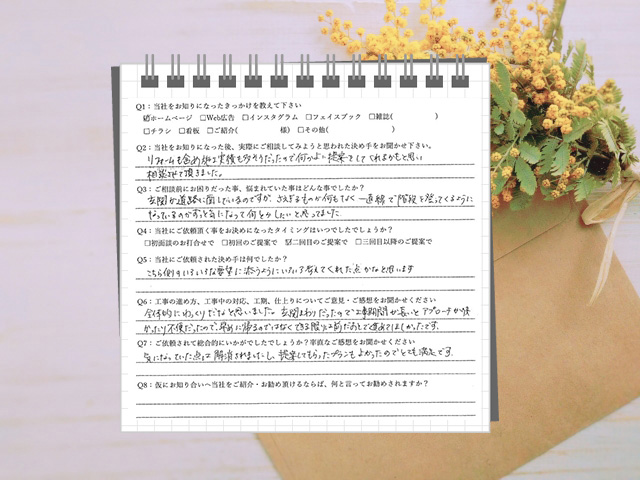 Q1：当社をお知りになったきっかけを教えて下さい
☑ホームページ　□Web広告　□インスタグラム　□フェイスブック　□雑誌(　　　　)
□チラシ　□看板　□ご紹介(　　　　様)　□その他(　　　　)
Q2：当社をお知りになった後、実際にご相談してみようと思われた決め手をお聞かせ下さい。
リフォームも含め施工実績も多そうだったので何かよい提案をしてくれるかもと思い
相談させて頂きました。
Q3：ご相談前にお困りだった事、悩まれていた事はどんな事でしたか？
玄関が道路に面しているのですが、さえぎるものが何もなく一直線で階段を登ってくるように
なっているのがずっと気になって何とかしたいと思ってました
Q4：当社にご依頼頂く事をお決めになったタイミングはいつでしたでしょうか？
□初面談のお打合せで　□初回のご提案で　☑二回目のご提案で　□三回目以降のご提案で
Q5：当社にご依頼された決め手は何でしたか？
こちら側のいろいろな要望に添うようにいろいろ考えてくれた点かなと思います
Q6：工事の進め方、工事中の対応、工期、仕上りについてご意見・ご感想をお聞かせください
全体的にゆっくりだなと思いました。玄関まわりだったので工事期間が長いとアプローチが
かったり不便だったので、早めに帰るのではなくできる限り工期前だおしで進めてほしかったです。
Q7：ご依頼されて総合的にいかがでしたでしょうか？率直なご感想をお聞かせください
気になっていた点は解消されましたし、提案してもらったプランもよかったのでとても満足です
Q8：仮にお知り合いへ当社をご紹介・お勧め頂けるならば、何と言ってお勧めされますか？